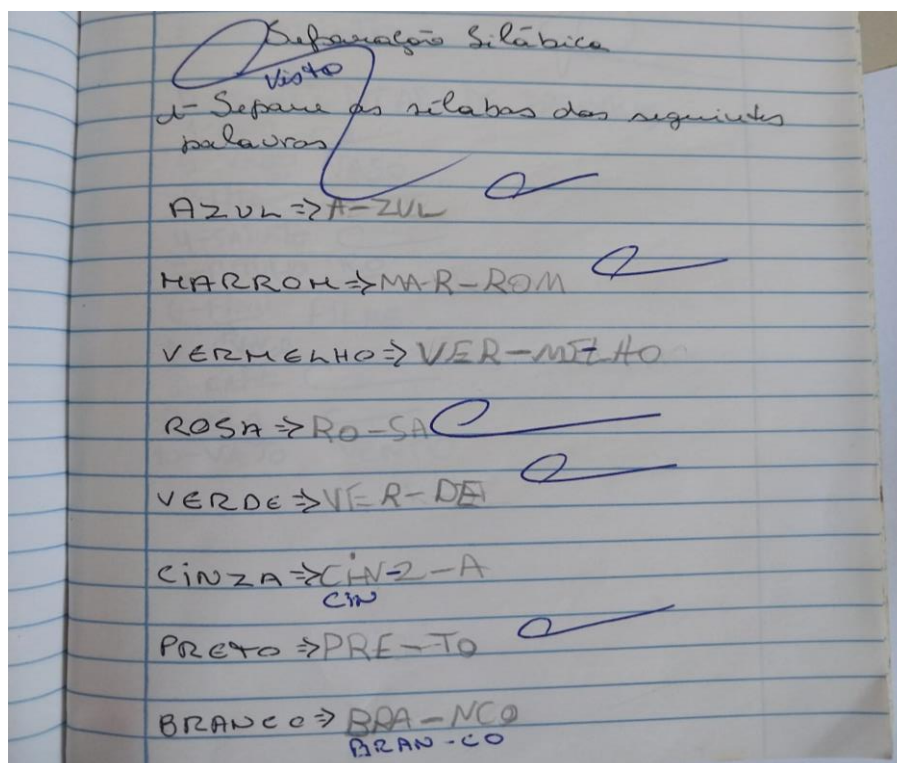 Separação Silábica
Visto
1- Separe as sílabas das seguintes
palavras
AZUL => A-ZUL
MARROM => MA-R-ROM
VERMELHO => VER-MELHO
ROSA => RO-SA
VERDE => VER-DE
CINZA => CIN-Z-A
CIN
PRETO => PRE-TO
BRANCO => BRA-NCO
BRAN-CO